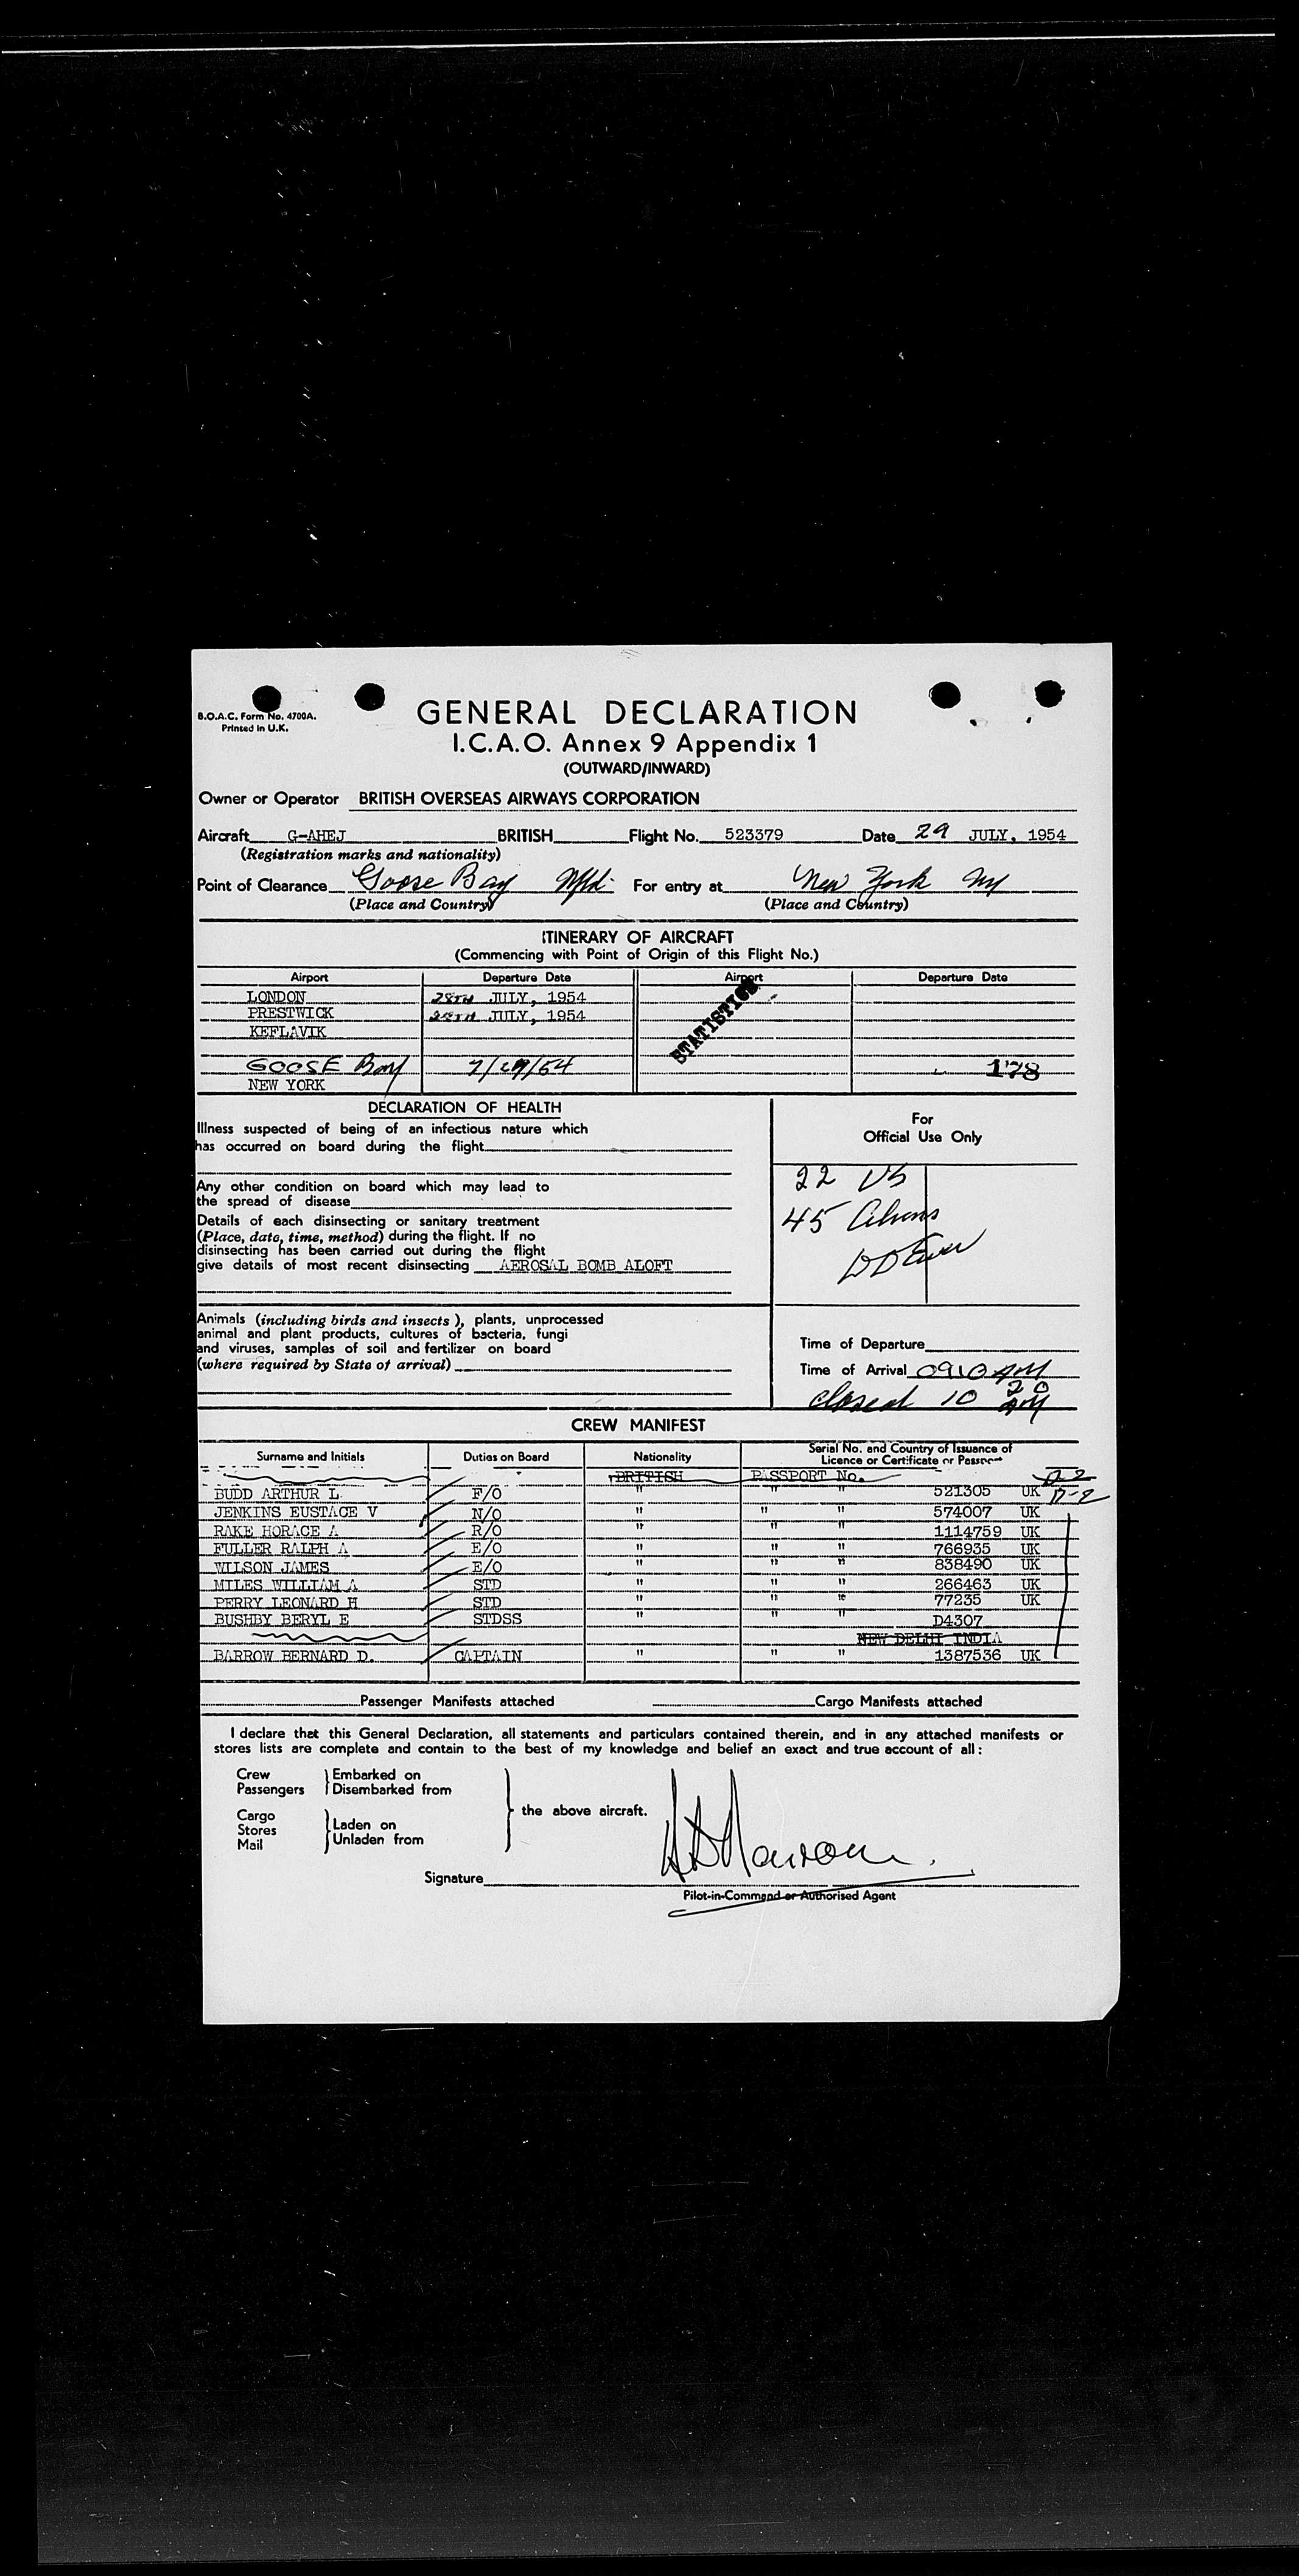 B.O.A.C. Form No. 4700A.
Printed in U.K.
GENERAL DECLARATION
I.C.A.O. Annex 9 Appendix 1
(OUTWARD/INWARD)
Owner or Operator BRITISH OVERSEAS AIRWAYS CORPORATION
Aircraft G-AHEJ BRITISH Flight No. 523379 Date 29 JULY, 1954
(Registration marks and nationality)
Point of Clearance Goose Bay Nfld. For entry at New York NY
(Place and Country) (Place and Country)
ITINERARY OF AIRCRAFT
(Commencing with Point of Origin of this Flight No.)
Airport Departure Date Airport Departure Date
LONDON 28TH JULY, 1954
PRESTWICK 28TH JULY, 1954
KEFLAVIK
STATISTICS
GOOSE Bay 7/29/54 178
NEW YORK
DECLARATION OF HEALTH
Illness suspected of being of an infectious nature which
has occurred on board during the flight
Any other condition on board which may lead to
the spread of disease
Details of each disinsecting or sanitary treatment
(Place, date, time, method) during the flight. If no
disinsecting has been carried out during the flight
give details of most recent disinsecting AEROSAL BOMB ALOFT
Animals (including birds and insects), plants, unprocessed
animal and plant products, cultures of bacteria, fungi
and viruses, samples of soil and fertilizer on board
(where required by State of arrival)
For
Official Use Only
22 US
45 Aliens
Time of Departure
Time of Arrival 0910 AM
closed 10 20 AM
CREW MANIFEST
Surname and Initials Duties on Board Nationality Serial No. and Country of Issuance of
Licence or Certificate or Passport
BRITISH PASSPORT No. D-2
BUDD ARTHUR L F/O " " " 521305 UK D-2
JENKINS EUSTACE V N/O " " " 574007 UK
RAKE HORACE A R/O " " " 1114759 UK
FULLER RALPH A E/O " " " 766935 UK
WILSON JAMES E/O " " " 838490 UK
MILES WILLIAM A STD " " " 266463 UK
PERRY LEONARD H STD " " " 77235 UK
BUSHBY BERYL E STDSS " " " D4307
NEW DELHI INDIA
BARROW BERNARD D. CAPTAIN " " " 1387536 UK
Passenger Manifests attached Cargo Manifests attached
I declare that this General Declaration, all statements and particulars contained therein, and in any attached manifests or
stores lists are complete and contain to the best of my knowledge and belief an exact and true account of all:
Crew
Passengers
Embarked on
Disembarked from
Cargo
Stores
Mail
Laden on
Unladen from
the above aircraft.
Signature
Pilot-in-Command or Authorised Agent